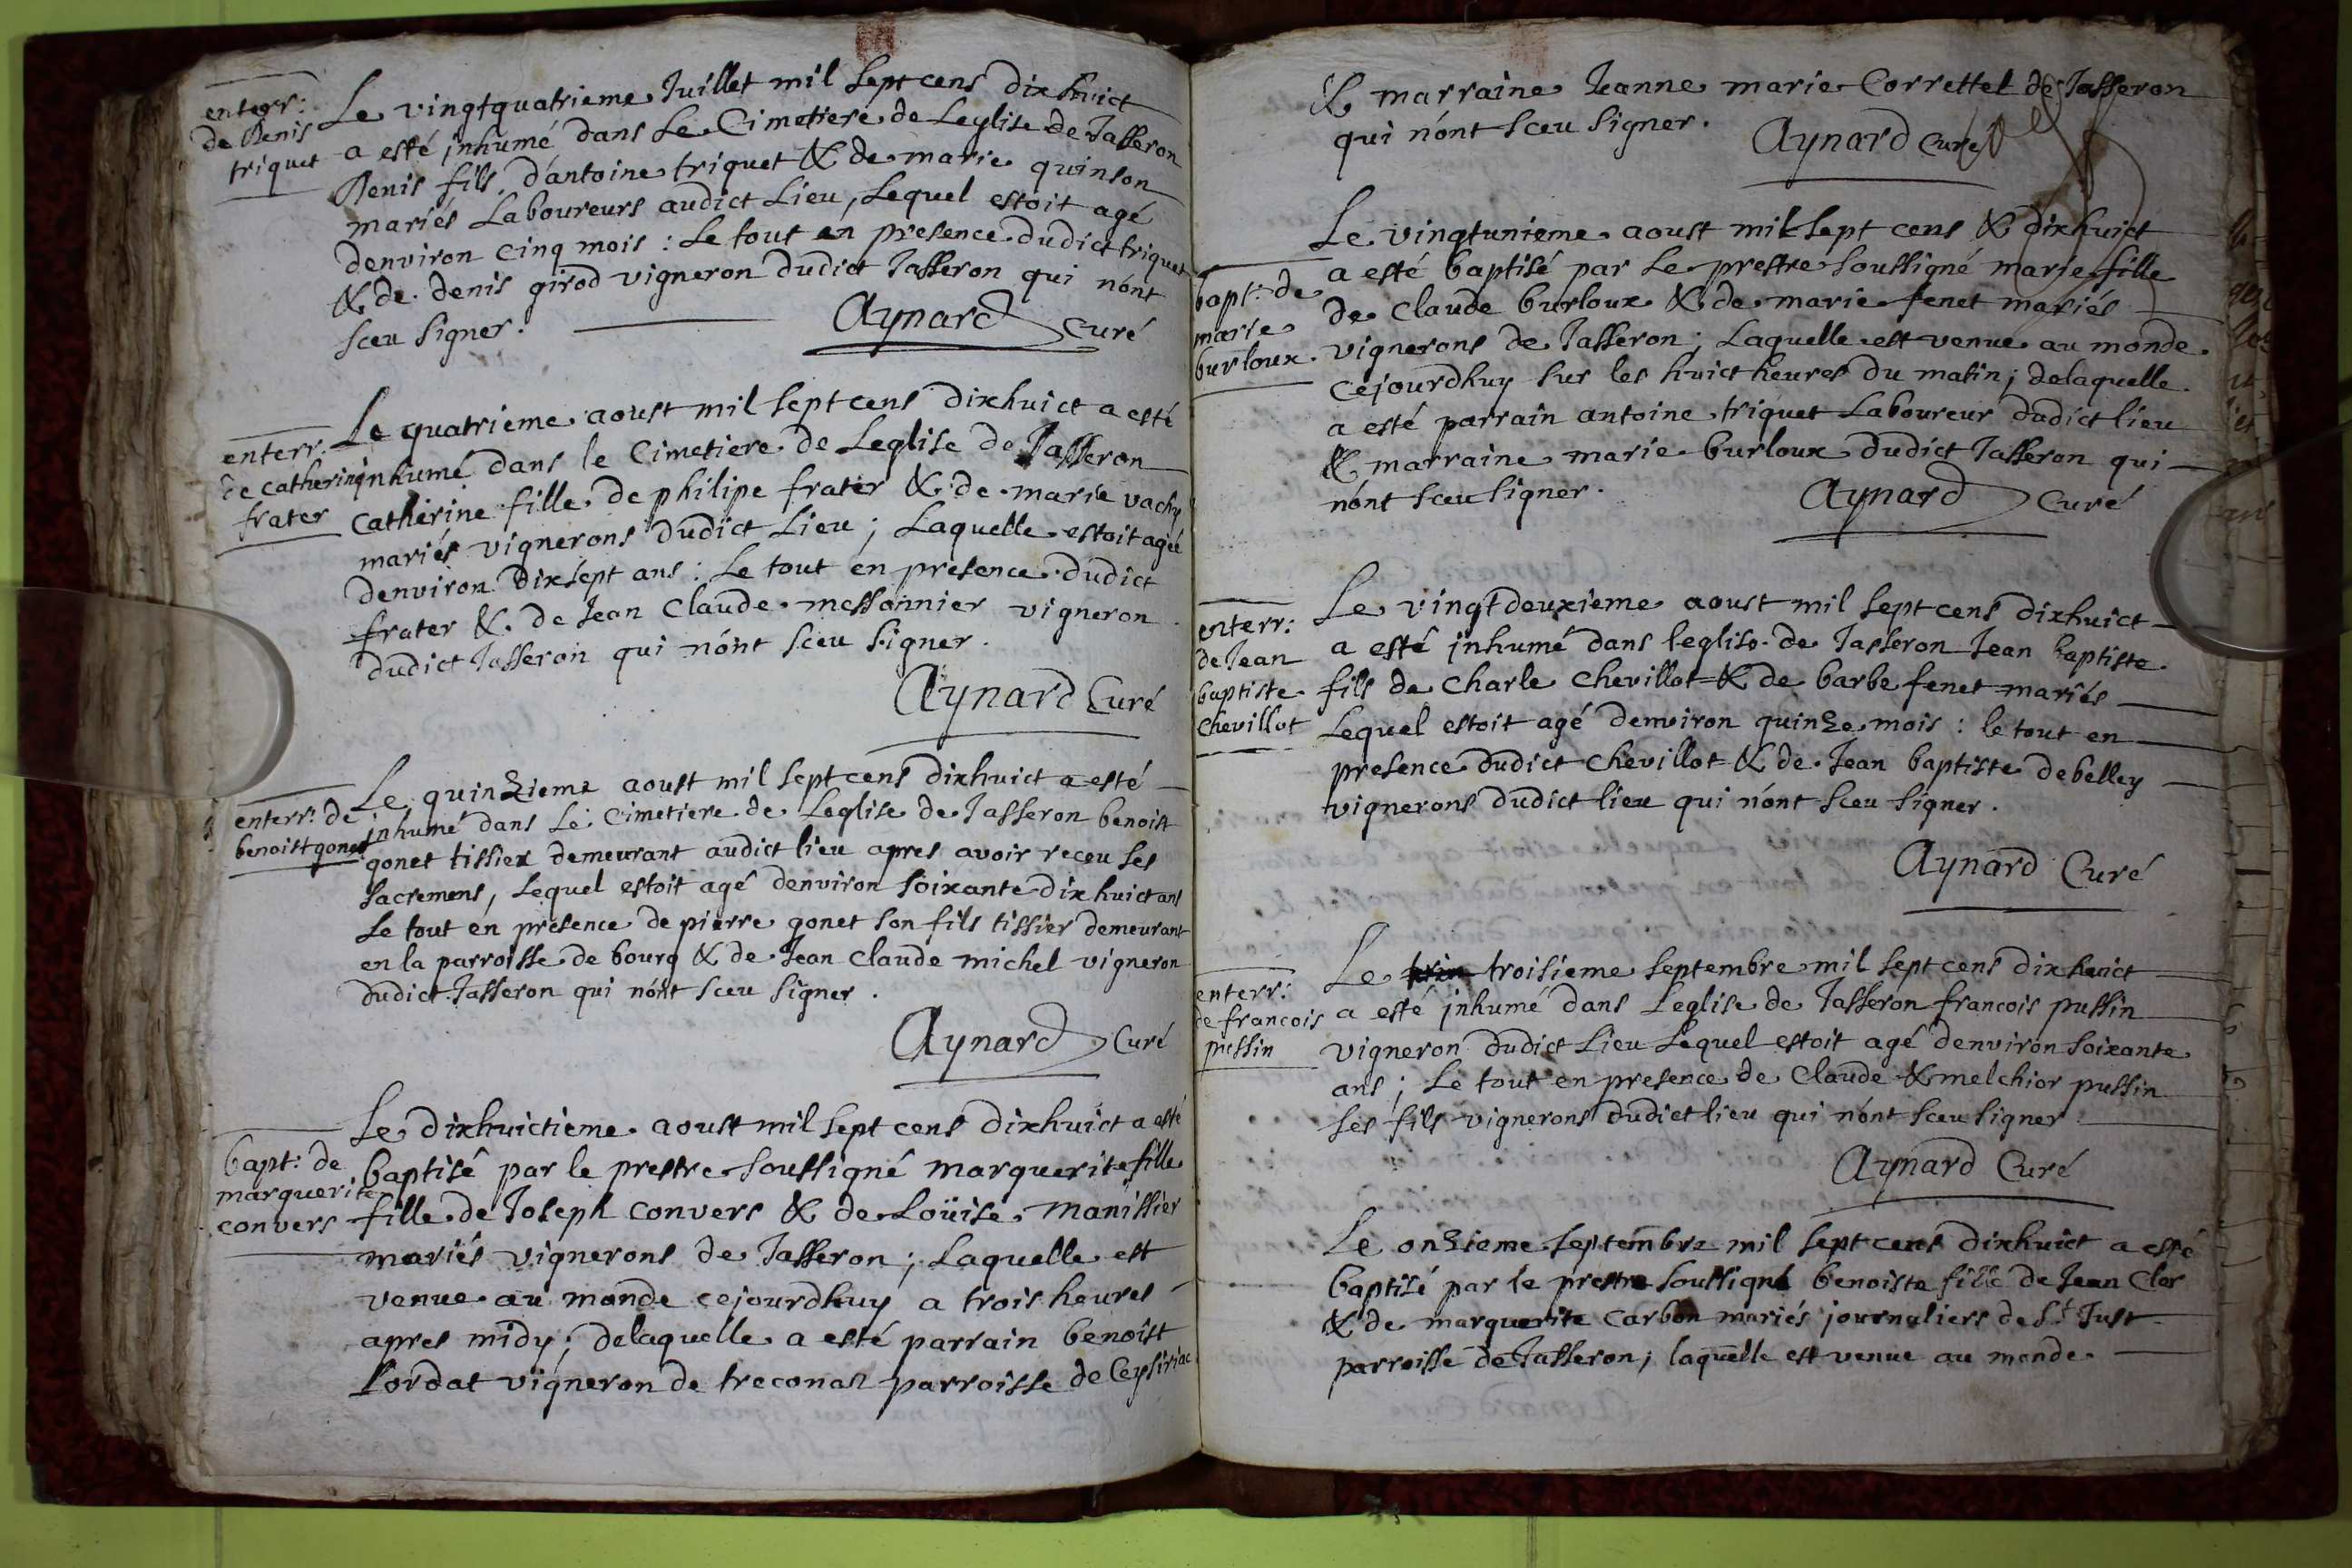 enterr:
de Denis
triquet
Le vingtquatrieme Juillet mil sept cens dixhuict
a esté inhumé dans Le Cimetiere de Leglise de Jasseron
Denis fils d'antoine triquet & de marie quinson
mariés Laboureurs audict Lieu, Lequel estoit agé
denviron cinq mois : Le tout en presence dudict triquet
& de denis girod vigneron dudict Jasseron qui n'ont
sceu signer.
Aynard Curé
enterr.
de catherine
frater
Le quatrieme aoust mil sept cens dixhuict a esté
inhumé dans le Cimetiere de Leglise de Jasseron
catherine fille de philipe frater & de marie vachy
mariés vignerons dudict Lieu ; Laquelle estoit agée
denviron dixsept ans : Le tout en presence dudict
frater & de Jean Claude messonnier vigneron
dudict Jasseron qui n'ont sceu signer.
Aynard Curé
enterr: de
benoist gonet
Le quinzieme aoust mil sept cens dixhuict a esté
inhumé dans Le Cimetiere de Leglise de Jasseron benoist
gonet tissier demeurant audict lieu apres avoir receu ses
sacremens, Lequel estoit agé denviron soixante dix huict ans
Le tout en presence de pierre gonet son fils tissier demeurant
en la parroisse de bourg & de Jean claude michel vigneron
dudict Jasseron qui n'ont sceu signer.
Aynard Curé
bapt: de
marguerite
convers
Le dixhuictieme aoust mil sept cens dixhuict a esté
baptisé par le prestre soussigné marguerite fille
fille de Joseph convers & de Loüise manissier
mariés vignerons de Jasseron ; Laquelle est
venue au monde cejourdhuy a trois heures
apres midy ; delaquelle a esté parrain benoist
sordat vigneron de treconas parroisse de Ceysiriac
& marraine Jeanne marie Correttet de Jasseron
qui n'ont sceu signer.
Aynard Curé
bapt: de
marie
burloux
Le vingtunieme aoust mil sept cens & dixhuict
a esté baptisé par Le prestre soussigné marie fille
de claude burloux & de marie fenet mariés
vignerons de Jasseron ; Laquelle est venue au monde
cejourdhuy sur les huict heures du matin ; delaquelle
a esté parrain antoine triquet Laboureur dudict lieu
& marraine marie burloux dudict Jasseron qui
n'ont sceu signer.
Aynard Curé
enterr:
de Jean
baptiste
chevillot
Le vingtdeuxieme aoust mil sept cens dixhuict
a esté inhumé dans leglise de Jasseron Jean baptiste
fils de charle chevillot & de barbe fenet mariés
Lequel estoit agé denviron quinze mois : le tout en
presence dudict chevillot & de Jean baptiste debelley
vignerons dudict lieu qui n'ont sceu signer.
Aynard Curé
enterr:
de francois
pussin
Le troisieme septembre mil sept cens dixhuict
a esté inhumé dans Leglise de Jasseron francois pussin
vigneron dudict Lieu Lequel estoit agé denviron soixante
ans ; Le tout en presence de claude & melchior pussin
ses fils vignerons dudict lieu qui n'ont sceu signer
Aynard Curé
Le onzieme septembre mil sept cens dixhuict a esté
baptisé par le prestre soussigné benoiste fille de Jean Cler
& de marguerite carbon mariés journaliers de St Just
parroisse de Jasseron ; laquelle est venue au monde